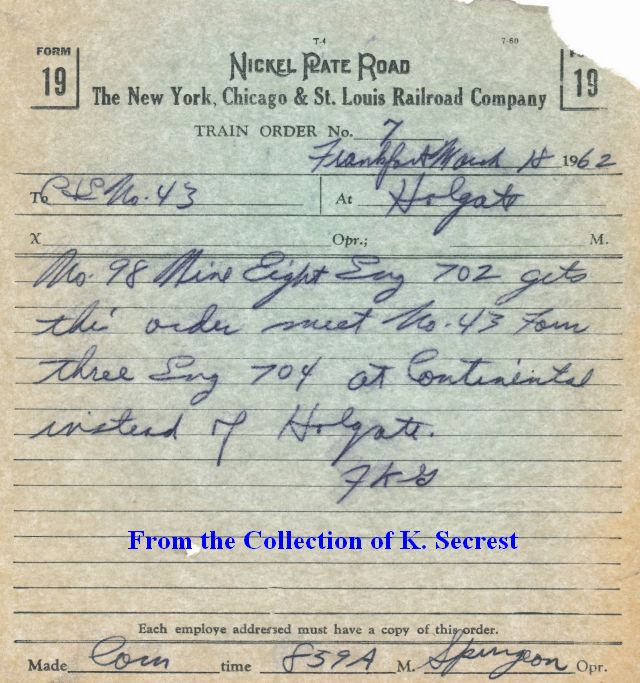 T-4 7-60
FORM 19
NICKEL PLATE ROAD
The New York, Chicago & St. Louis Railroad Company
19
TRAIN ORDER No. 7
Frankfort March 18 1962
To C&E No. 43 At Holgate
X Opr.; M.
No. 98 Nine Eight Eng 702 gets
this order meet No. 43 Four
three Eng 704 at Continental
instead of Holgate.
FKG
From the Collection of K. Secrest
Each employe addressed must have a copy of this order.
Made Com time 859A M. Spurgeon Opr.